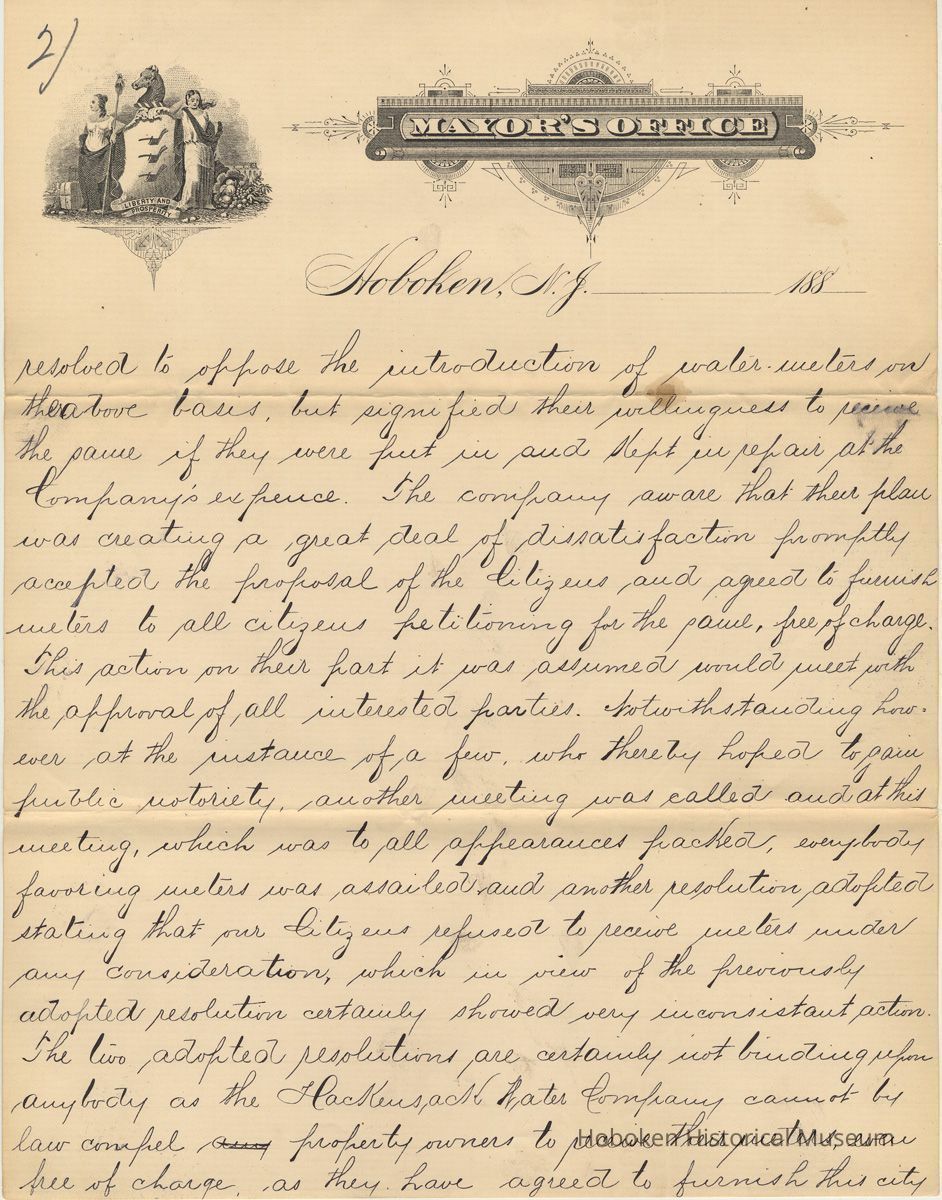 2/
LIBERTY AND
PROSPERITY
MAYOR'S OFFICE
Hoboken, N. J. 188
resolved to oppose the introduction of water-meters on
the above basis, but signified their willingness to receive
the same if they were put in and kept in repair at the
Company's expence. The company aware that their plan
was creating a great deal of dissatisfaction promptly
accepted the proposal of the Citizens and agreed to furnish
meters to all citizens petitioning for the same, free of charge.
This action on their part it was assumed would meet with
the approval of all interested parties. Notwithstanding how-
ever at the instance of a few, who thereby hoped to gain
public notoriety, another meeting was called and at this
meeting, which was to all appearances packed, everybody
favoring meters was assailed and another resolution adopted
stating that our Citizens refused to receive meters under
any consideration, which in view of the previously
adopted resolution certainly showed very inconsistant action.
The two adopted resolutions are certainly not binding upon
anybody as the Hackensack Water Company cannot by
law compel any property owners to receive their meters, even
free of charge, as they have agreed to furnish this city
Hoboken Historical Museum